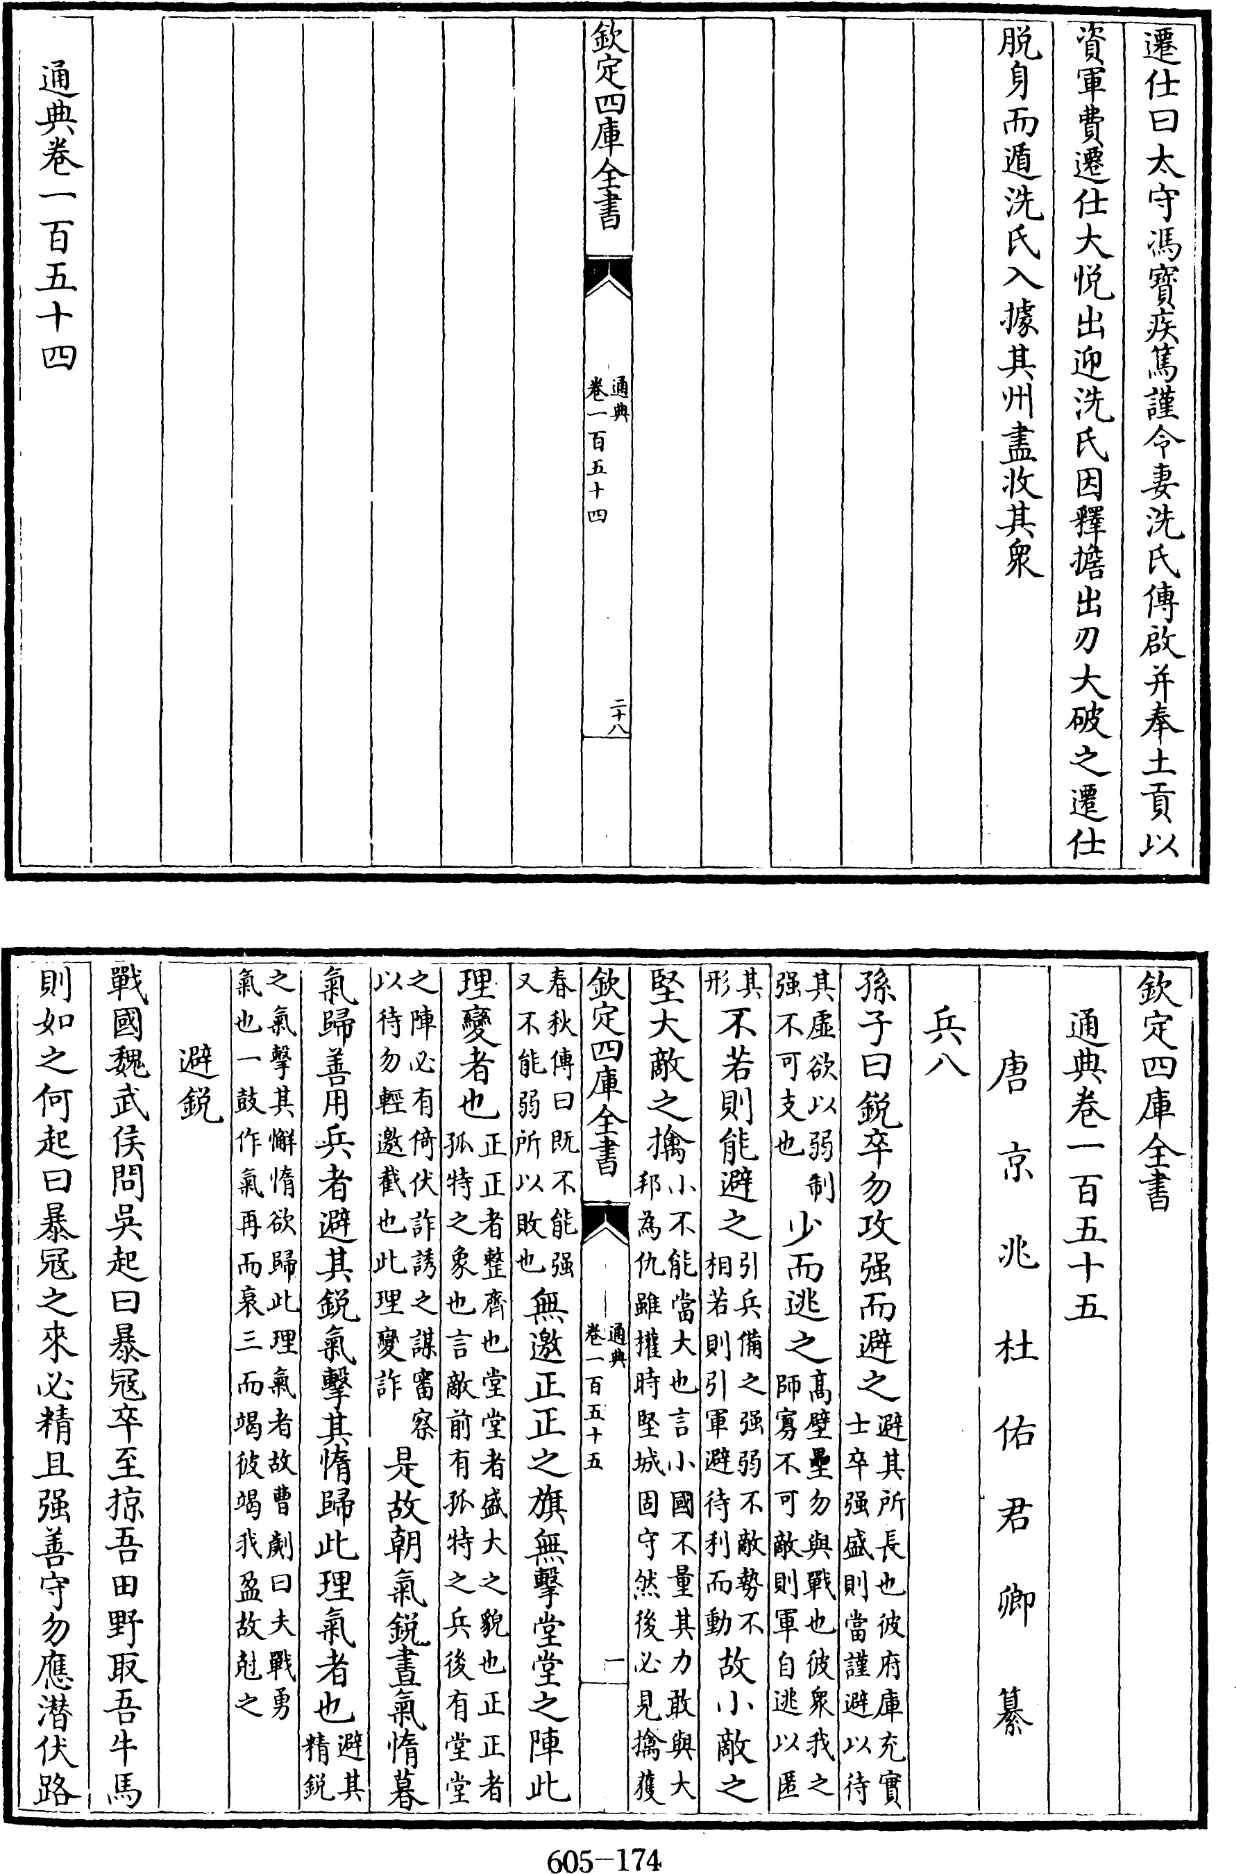 遷仕曰太守馮寶疾篤謹令妻洗氏傳啟并奉土貢以
資軍費遷仕大悅出迎洗氏因釋擔出刃大破之遷仕
脱身而遁洗氏入據其州盡收其衆
欽定四庫全書
通典
卷一百五十四
二十八
通典卷一百五十四
欽定四庫全書
通典卷一百五十五
唐京兆杜佑君卿纂
兵八
孫子曰鋭卒勿攻强而避之避其所長也彼府庫充實士卒强盛則當謹避以待
其虛欲以弱制强不可支也少而逃之髙壁壘勿與戰也彼衆我之師寡不可敵則軍自逃以匿
其形不若則能避之引兵備之强弱不敵勢不相若則引軍避待利而動故小敵之
堅大敵之擒小不能當大也言小國不量其力敢與大邦為仇雖權時堅城固守然後必見擒獲
欽定四庫全書
通典
卷一百五十五
一
春秋傳曰既不能强又不能弱所以敗也無邀正正之旗無擊堂堂之陣此
理變者也正正者整齊也堂堂者盛大之貌也正正者孤特之象也言敵前有孤特之兵後有堂堂
之陣必有倚伏詐誘之謀審察以待勿輕邀截也此理變詐是故朝氣鋭晝氣惰暮
氣歸善用兵者避其鋭氣擊其惰歸此理氣者也避其精鋭
之氣擊其懈惰欲歸此理氣者故曹劌曰夫戰勇氣也一鼓作氣再而衰三而竭彼竭我盈故尅之
避鋭
戰國魏武侯問吳起曰暴冦卒至掠吾田野取吾牛馬
則如之何起曰暴冦之來必精且强善守勿應潜伏路
605-174